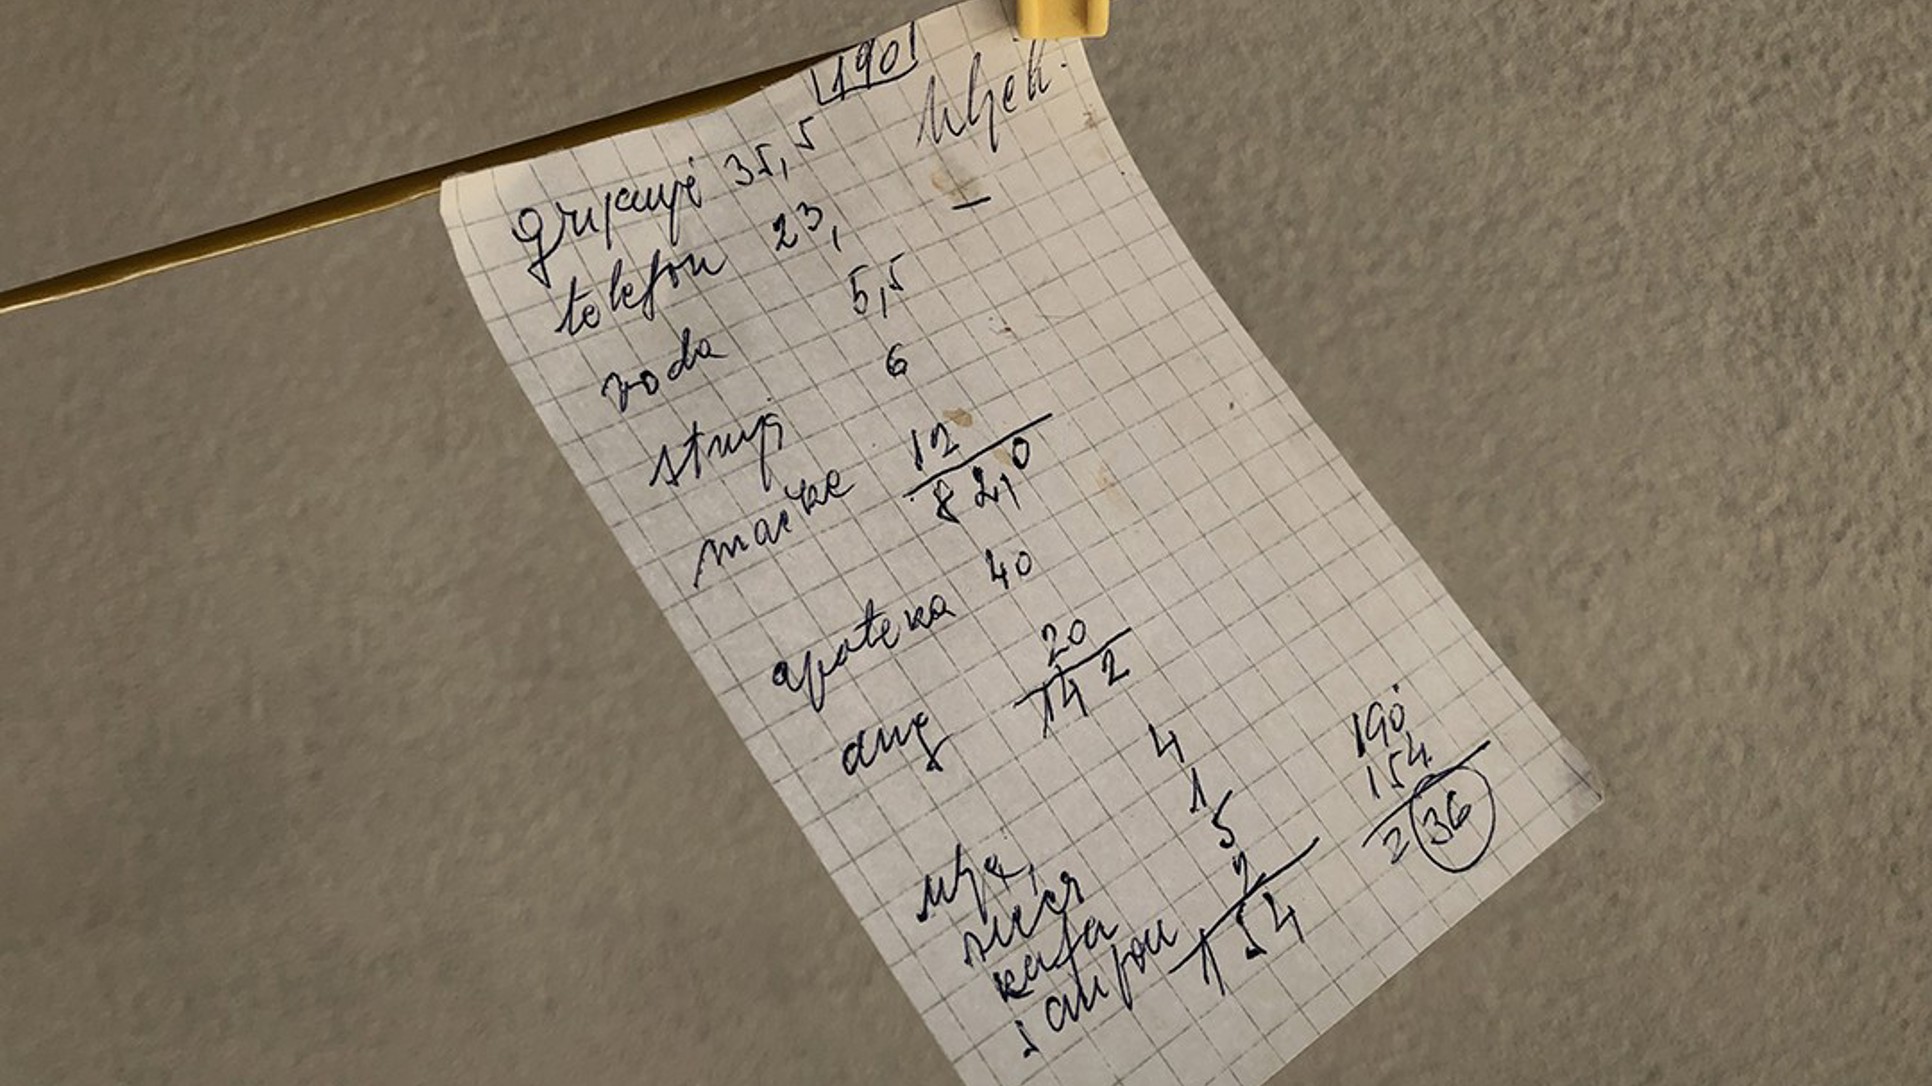 190
grijanje 35,5
telefon 23,
voda 5,5
struja 6
mačke 12
82,0
apoteka 40
dug 20
142
ulje, 4
1
kafa 5
šampon 2
154
190
154
36